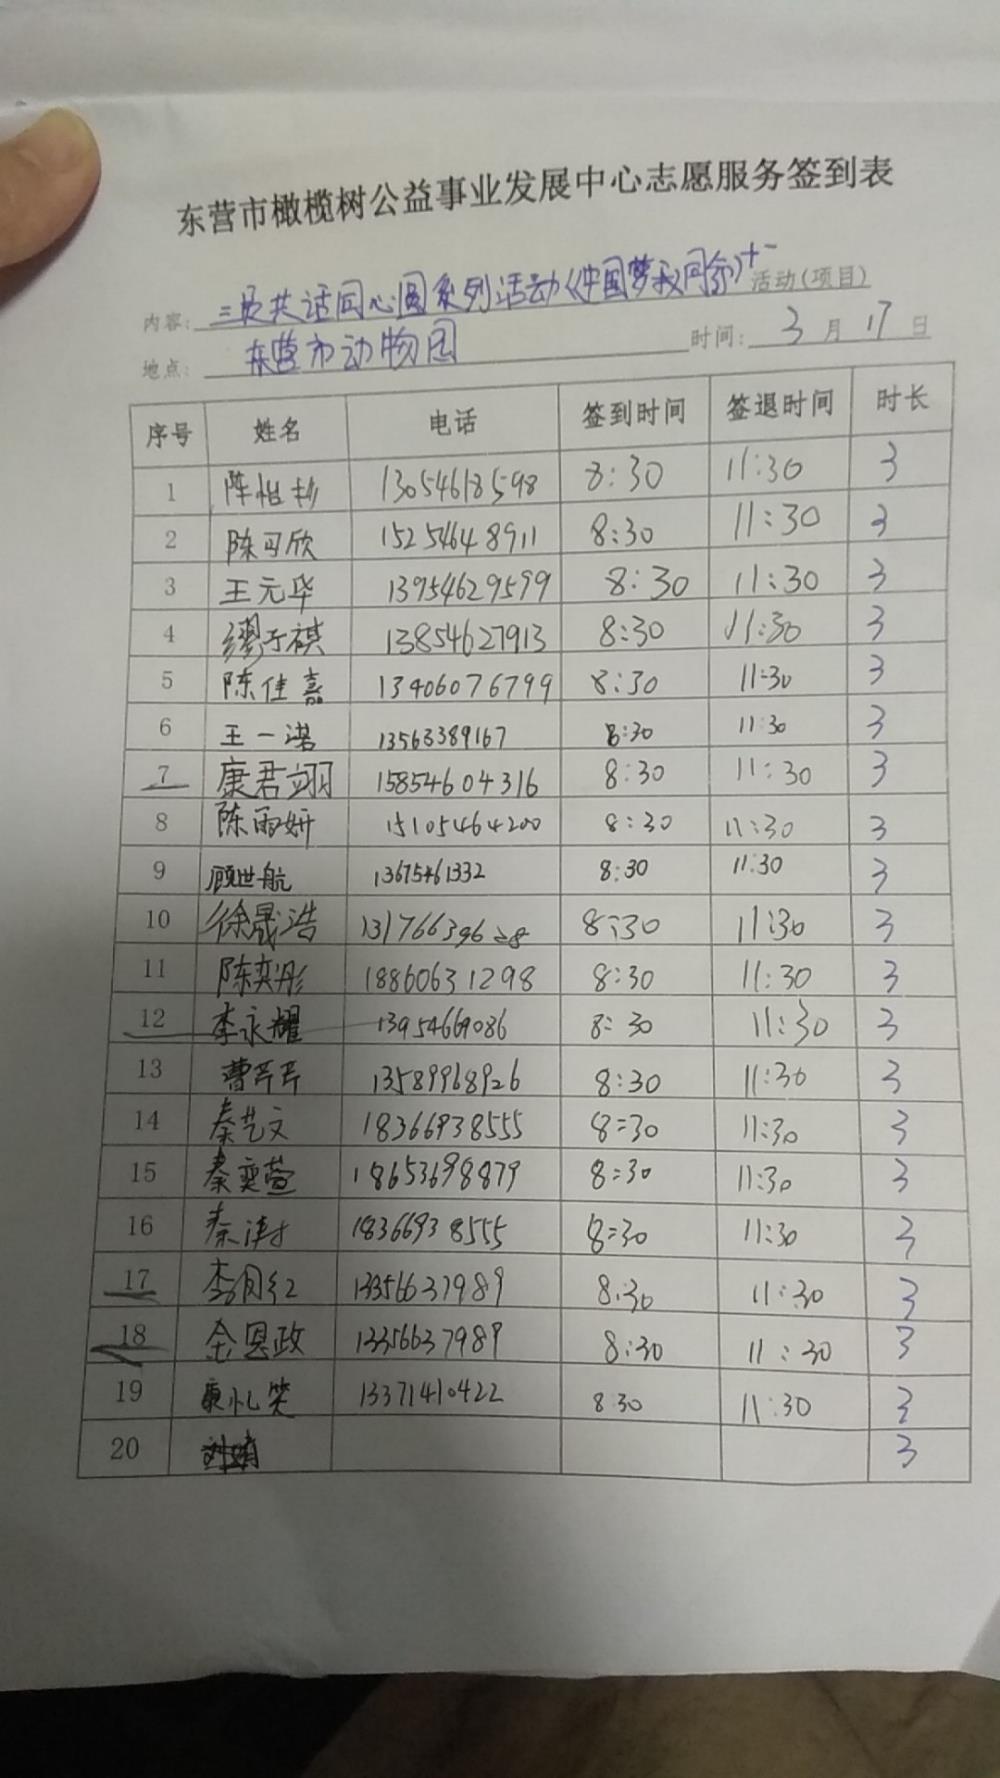 东营市橄榄树公益事业发展中心志愿服务签到表
内容: 共话同心圆系列活动《中国梦 同 》十一 活动(项目)
地点: 东营市动物园 时间: 3 月 17 日
序号 姓名 电话 签到时间 签退时间 时长
1 陈怡杉 13054618598 8:30 11:30 3
2 陈可欣 15254648911 8:30 11:30 3
3 王元华 13954629599 8:30 11:30 3
4 缪于祺 13854627913 8:30 11:30 3
5 陈佳嘉 13406076799 8:30 11:30 3
6 王一诺 13563389167 8:30 11:30 3
7 康君翊 15854604316 8:30 11:30 3
8 陈雨妍 15105464200 8:30 11:30 3
9 顾世航 13675461332 8:30 11:30 3
10 徐晟浩 8:30 11:30 3
11 陈奕彤 18860631298 8:30 11:30 3
12 李永耀 13954669086 8:30 11:30 3
13 曹芹芹 13589968926 8:30 11:30 3
14 秦艺文 18366938555 8:30 11:30 3
15 秦奕萱 18653698879 8:30 11:30 3
16 秦 18366938555 8:30 11:30 3
17 李月红 13356637989 8:30 11:30 3
18 金恩政 13356637989 8:30 11:30 3
19 康 笑 13371410422 8:30 11:30 3
20 3